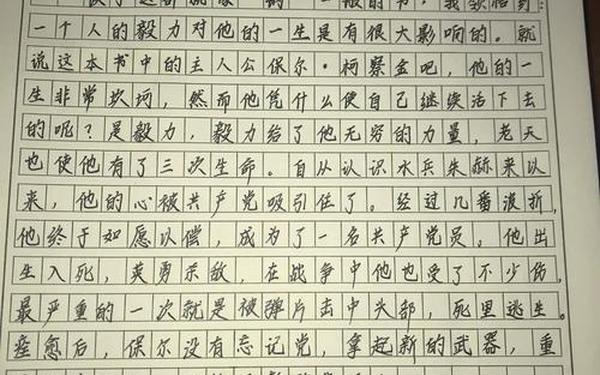 一般的书，我领悟到：
一个人的毅力对他的一生是有很大影响的。就
说这本书中的主人公保尔·柯察金吧，他的一
生非常坎坷，然而他凭什么使自己继续活下去
的呢？是毅力，毅力给了他无穷的力量，老天
也使他有了三次生命。自从认识水兵朱赫来以
来，他的心被共产党吸引住了。经过几番波折，
他终于如愿以偿，成为了一名共产党员。他出
生入死，英勇杀敌，在战争中他也受了不少伤，
最严重的一次就是被弹片击中头部，死里逃生。
痊愈后，保尔没有忘记党，拿起新的武器，重